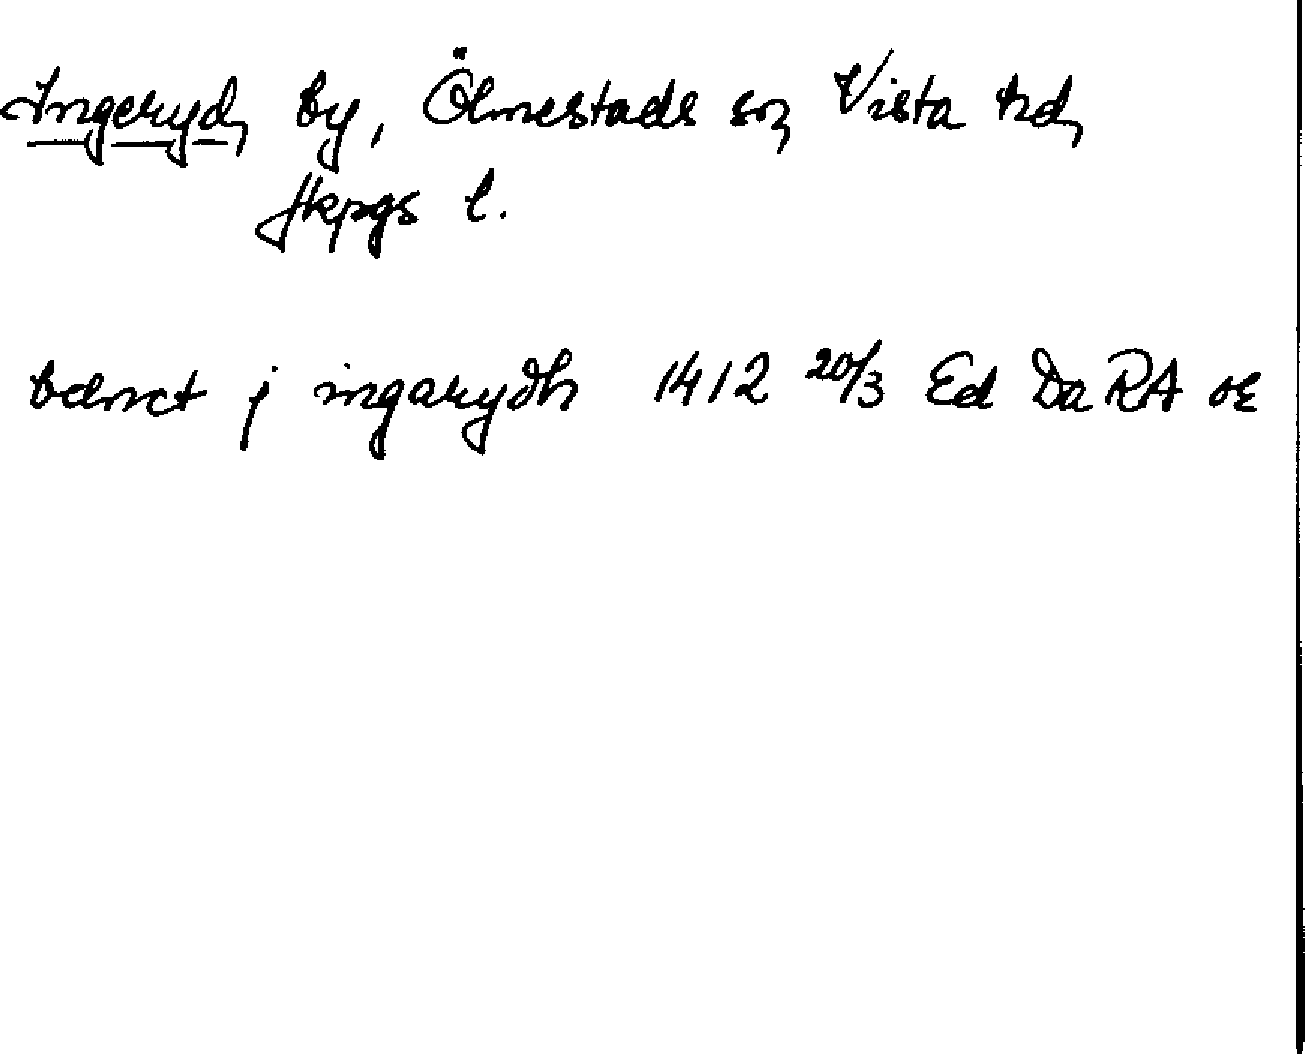 Ingeryd, by, Ölmestads sn, Vista hd,
Jkpgs l.
bennct j ingarydh 1412 20/3 Ed Da RA or